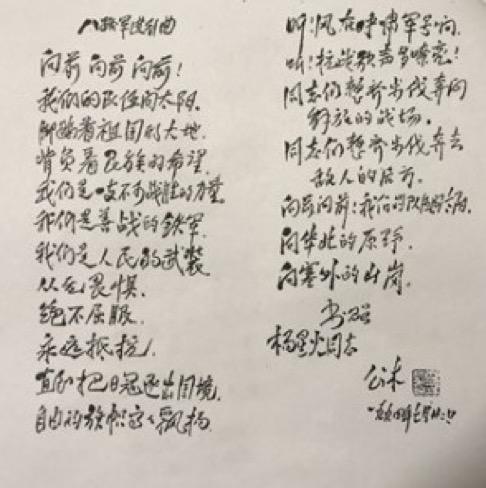 八路军进行曲
向前向前向前!
我们的队伍向太阳.
脚踏着祖国的大地.
背负着民族的希望.
我们是一支不可战胜的力量.
我们是善战的铁军.
我们是人民的武装.
从无畏惧.
绝不屈服.
永远抵抗.
直到把日寇逐出国境.
自由的旗帜高高飘扬.
听!风在呼啸军号响.
听!抗战歌声多嘹亮!
同志们整齐步伐奔向
解放的战场.
同志们整齐步伐奔去
敌人的后方.
向前向前!我们的队伍向太阳.
向华北的原野.
向塞外的山岗.
书赠
杨星火同志
公木